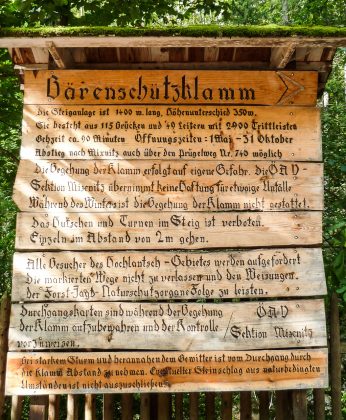 Bärenschützklamm
Die Steiganlage ist 1400 m. lang, Höhenunterschied 350m.
Sie besteht aus 115 Brücken und 49 Leitern mit 2900 Trittleisten
Gehzeit ca. 90 Minuten Öffnungszeiten: 1 Mai - 31 Oktober
Abstieg nach Mixnitz auch über den Prügelweg Nr. 740 möglich
Die Begehung der Klamm erfolgt auf eigene Gefahr. Die ÖAV
Sektion Mixnitz übernimmt keine Haftung für etwaige Unfälle
Während des Winters ist die Begehung der Klamm nicht gestattet.
Das Hutschen und Turnen im Steig ist verboten.
Einzeln im Abstand von 2m gehen.
Alle Besucher des Hochlantsch-Gebietes werden aufgefordert
die markierten Wege nicht zu verlassen und den Weisungen
der Forst-Jagd-Naturschutzorgane Folge zu leisten.
Durchgangskarten sind während der Begehung ÖAV
der Klamm aufzubewahren und der Kontrolle Sektion Mixnitz
vorzuweisen.
Bei starkem Sturm und herannahendem Gewitter ist vom Durchgang durch
die Klamm Abstand zu nehmen. Eventueller Steinschlag aus naturbedingten
Umständen ist nicht auszuschließen.